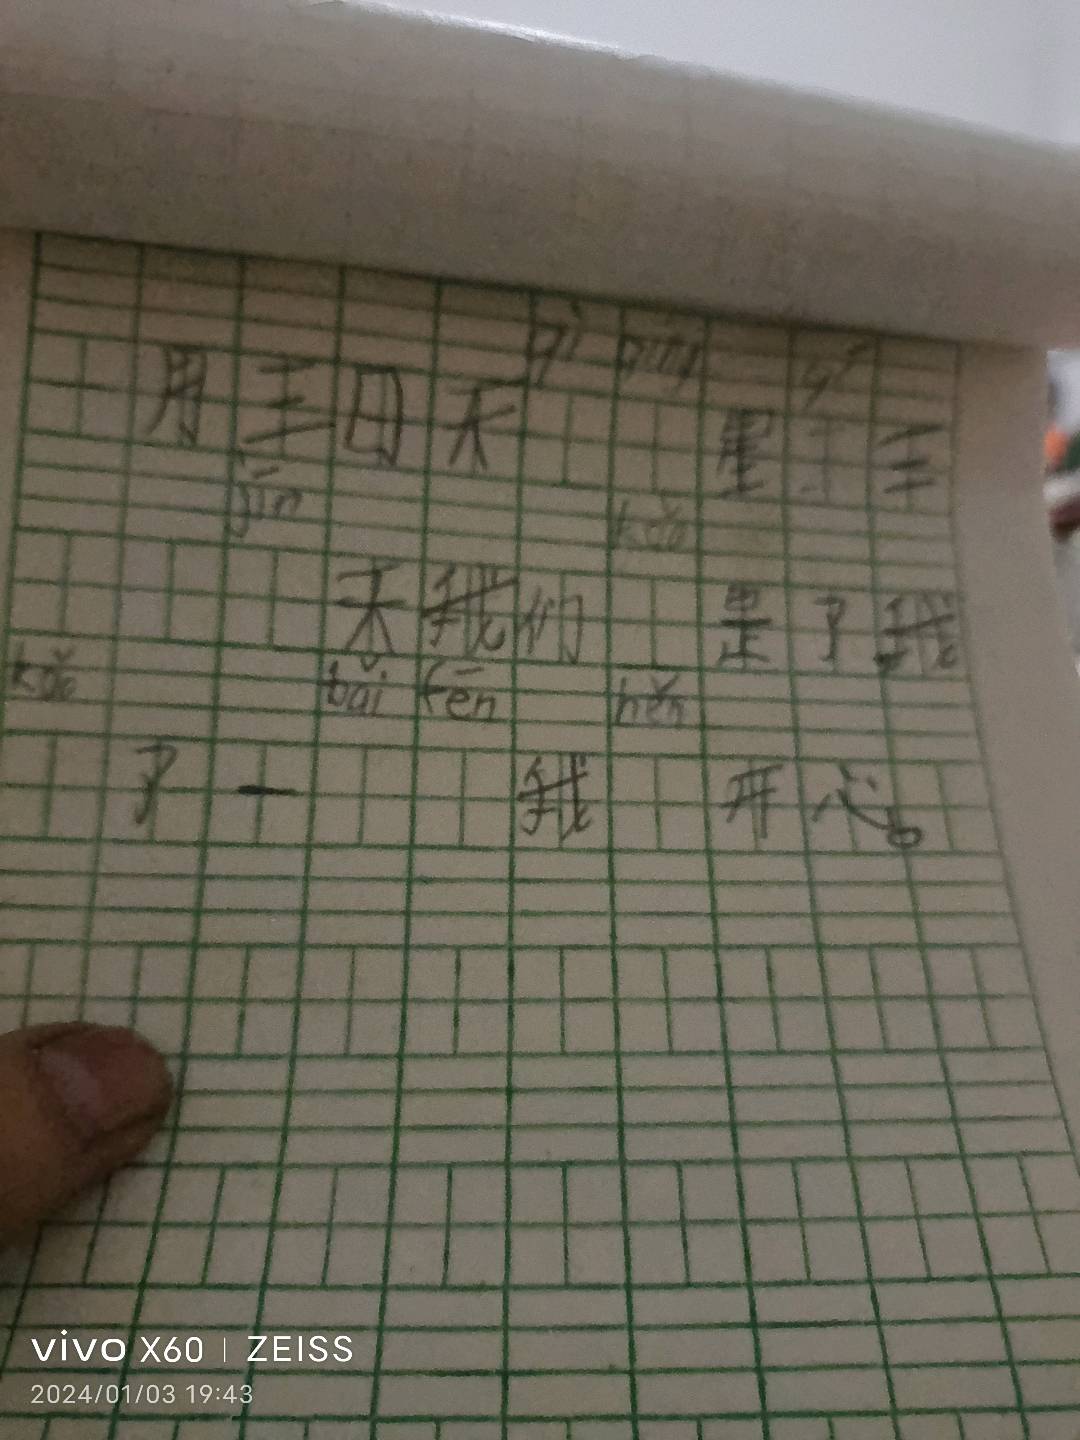 qì qíng
月三日天 星 三
jīn kǎo
天我们 是了我
kǎo bǎi fēn hěn
了一 我 开心。
vivo X60 | ZEISS
2024/01/03 19:43